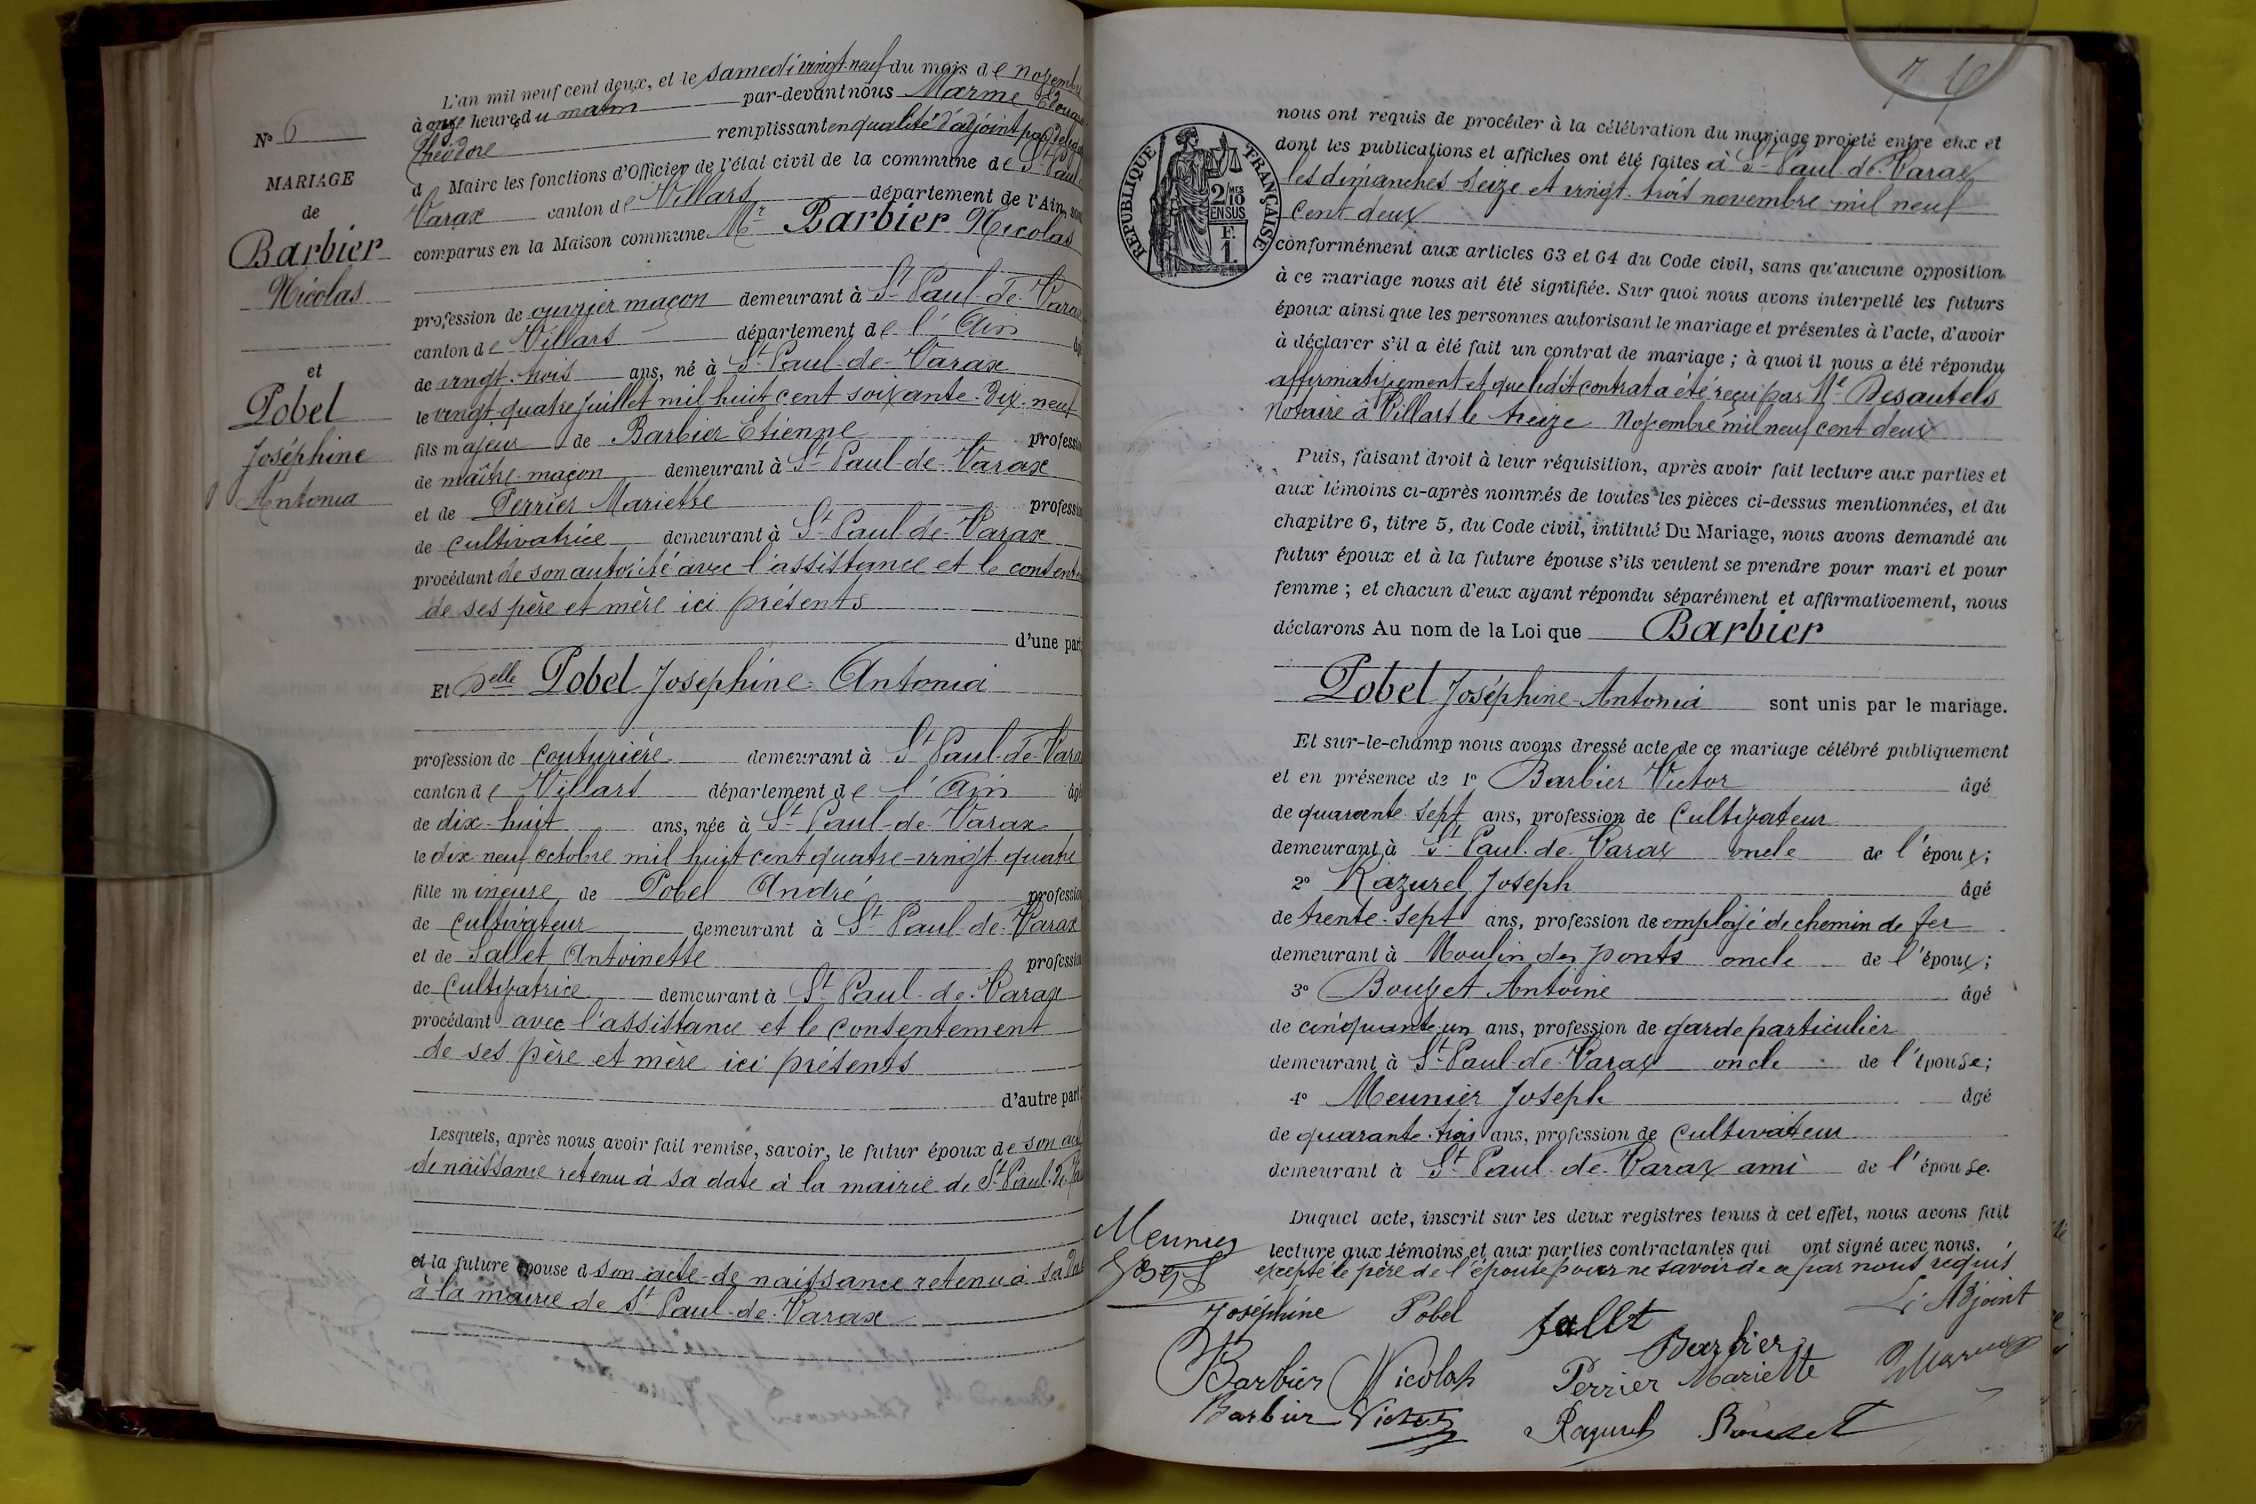 N° 6
MARIAGE
de
Barbier
Nicolas
et
Pobel
Joséphine
Antonia
L'an mil neuf cent deux, et le samedi vingt-neuf du mois de novembre
à onze heures du matin par-devant nous Marme Edouard
Théodore remplissant en qualité d'adjoint par
d Maire les fonctions d'Officier de l'état civil de la commune de St Paul
Varax canton de Villars département de l'Ain, sont
comparus en la Maison commune Mr Barbier Nicolas
profession de ouvrier maçon demeurant à St Paul-de-Varax
canton de Villars département de l'Ain âgé
de vingt-trois ans, né à St Paul-de-Varax
le vingt quatre juillet mil huit cent soixante-dix-neuf
fils majeur de Barbier Etienne profession
de maître maçon demeurant à St Paul-de-Varax
et de Perrier Mariette profession
de cultivatrice demeurant à St Paul-de-Varax
procédant de son autorité avec l'assistance et le consente
de ses père et mère ici présents
d'une part
Et Delle Pobel Joséphine Antonia
profession de couturière demeurant à St Paul-de-Vara
canton de Villars département de l'Ain âgé
de dix-huit ans, née à St Paul-de-Varax
le dix-neuf octobre mil huit cent quatre-vingt-quatre
fille mineure de Pobel André profession
de cultivateur demeurant à St Paul-de-Varax
et de Sallet Antoinette profession
de cultivatrice demeurant à St Paul-de-Varax
procédant avec l'assistance et le consentement
de ses père et mère ici présents
d'autre part;
Lesquels, après nous avoir fait remise, savoir, le futur époux de son acte
de naissance retenu à sa date à la mairie de St Paul-de-Va
et la future épouse d son acte de naissance retenu à sa date
à la mairie de St Paul-de-Varax
REPUBLIQUE FRANÇAISE
2/10 MES
EN SUS
F.
1.
nous ont requis de procéder à la célébration du mariage projeté entre eux et
dont les publications et affiches ont été faites à St Paul-de-Varax
les dimanches seize et vingt-trois novembre mil neuf
cent deux
conformément aux articles 63 et 64 du Code civil, sans qu'aucune opposition
à ce mariage nous ait été signifiée. Sur quoi nous avons interpellé les futurs
époux ainsi que les personnes autorisant le mariage et présentes à l'acte, d'avoir
à déclarer s'il a été fait un contrat de mariage; à quoi il nous a été répondu
affirmativement et que ledit contrat a été reçu par Me Desautels
Notaire à Villars le treize novembre mil neuf cent deux
Puis, faisant droit à leur réquisition, après avoir fait lecture aux parties et
aux témoins ci-après nommés de toutes les pièces ci-dessus mentionnées, et du
chapitre 6, titre 5, du Code civil, intitulé Du Mariage, nous avons demandé au
futur époux et à la future épouse s'ils veulent se prendre pour mari et pour
femme; et chacun d'eux ayant répondu séparément et affirmativement, nous
déclarons Au nom de la Loi que Barbier
Pobel Joséphine-Antonia sont unis par le mariage.
Et sur-le-champ nous avons dressé acte de ce mariage célébré publiquement
et en présence de 1° Barbier Victor âgé
de quarante sept ans, profession de cultivateur
demeurant à St Paul-de-Varax oncle de l'époux;
2° Razurel Joseph âgé
de trente-sept ans, profession de employé de chemin de fer
demeurant à Moulin des ponts oncle de l'époux;
3° Bouvet Antoine âgé
de cinquante-un ans, profession de garde particulier
demeurant à St Paul-de-Varax oncle de l'épouse;
4° Meunier Joseph âgé
de quarante-trois ans, profession de cultivateur
demeurant à St Paul-de-Varax ami de l'épouse.
Duquel acte, inscrit sur les deux registres tenus à cet effet, nous avons fait
lecture aux témoins et aux parties contractantes qui ont signé avec nous.
excepté le père de l'épouse pour ne savoir de ce par nous requis
Meunier
Joséphine Pobel Sallet L'Adjoint
Barbier
Barbier Nicolas Perrier Mariette Marme
Barbier Victor Razurel Bouvet